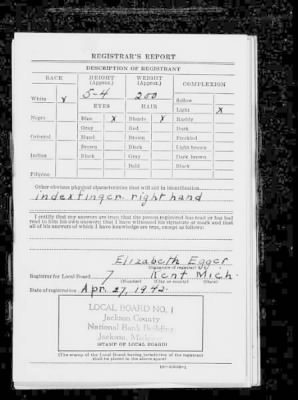 REGISTRAR'S REPORT
DESCRIPTION OF REGISTRANT
RACE HEIGHT (Approx.) WEIGHT (Approx.) COMPLEXION
5-4 200
White X Sallow
EYES HAIR Light X
Negro Blue X Blonde X Ruddy
Gray Red Dark
Oriental Hazel Brown Freckled
Brown Black Light brown
Indian Black Gray Dark brown
Bald Black
Filipino
Other obvious physical characteristics that will aid in identification
index finger right hand
I certify that my answers are true; that the person registered has read or has had
read to him his own answers; that I have witnessed his signature or mark and that
all of his answers of which I have knowledge are true, except as follows:
Elizabeth Egger
(Signature of registrar)
Registrar for Local Board 7 Kent Mich.
(Number) (City or county) (State)
Date of registration Apr. 27, 1942
LOCAL BOARD NO. 1
Jackson County
National Bank Building
Jackson, Michigan
(STAMP OF LOCAL BOARD)
(The stamp of the Local Board having jurisdiction of the registrant
shall be placed in the above space)